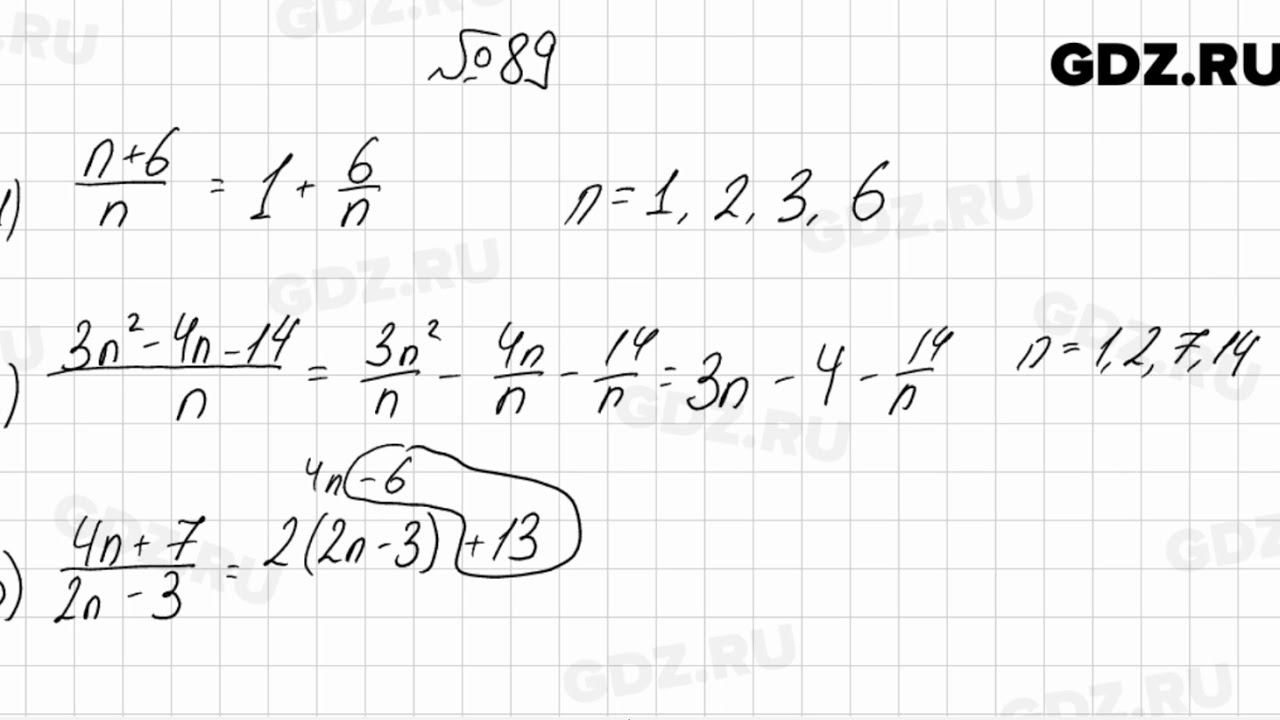 GDZ.RU
№89
1) (n+6)/n = 1 + 6/n n = 1, 2, 3, 6
) (3n² - 4n - 14)/n = 3n²/n - 4n/n - 14/n = 3n - 4 - 14/n n = 1, 2, 7, 14
4n - 6
) (4n + 7)/(2n - 3) = 2(2n - 3) + 13